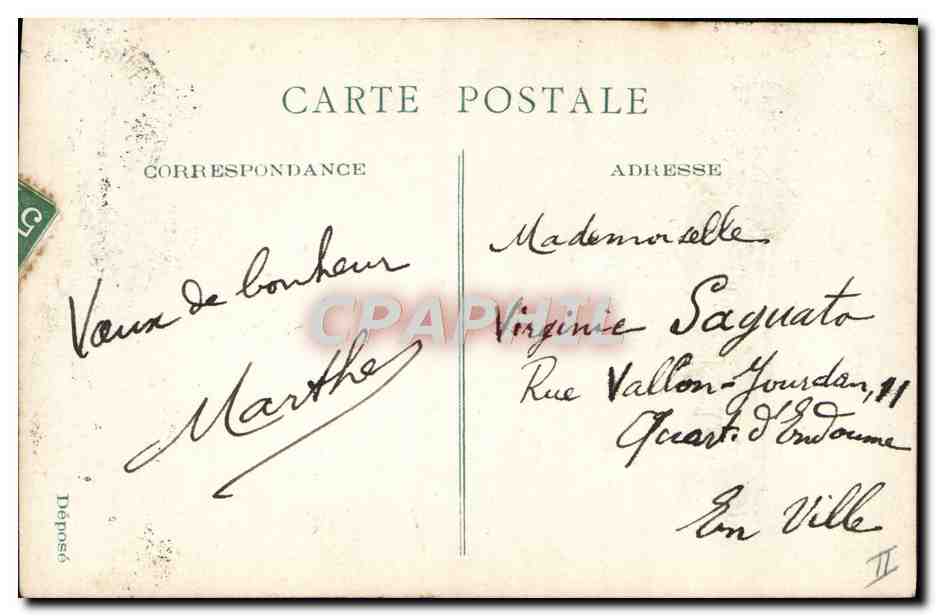 CARTE POSTALE
CORRESPONDANCE
ADRESSE
5
Vœux de bonheur
Marthe
Mademoiselle
Virginie Saguato
Rue Vallon-Jourdan, 11
Quart. d'Endoume
En Ville
Déposé
II
CPAPHIL